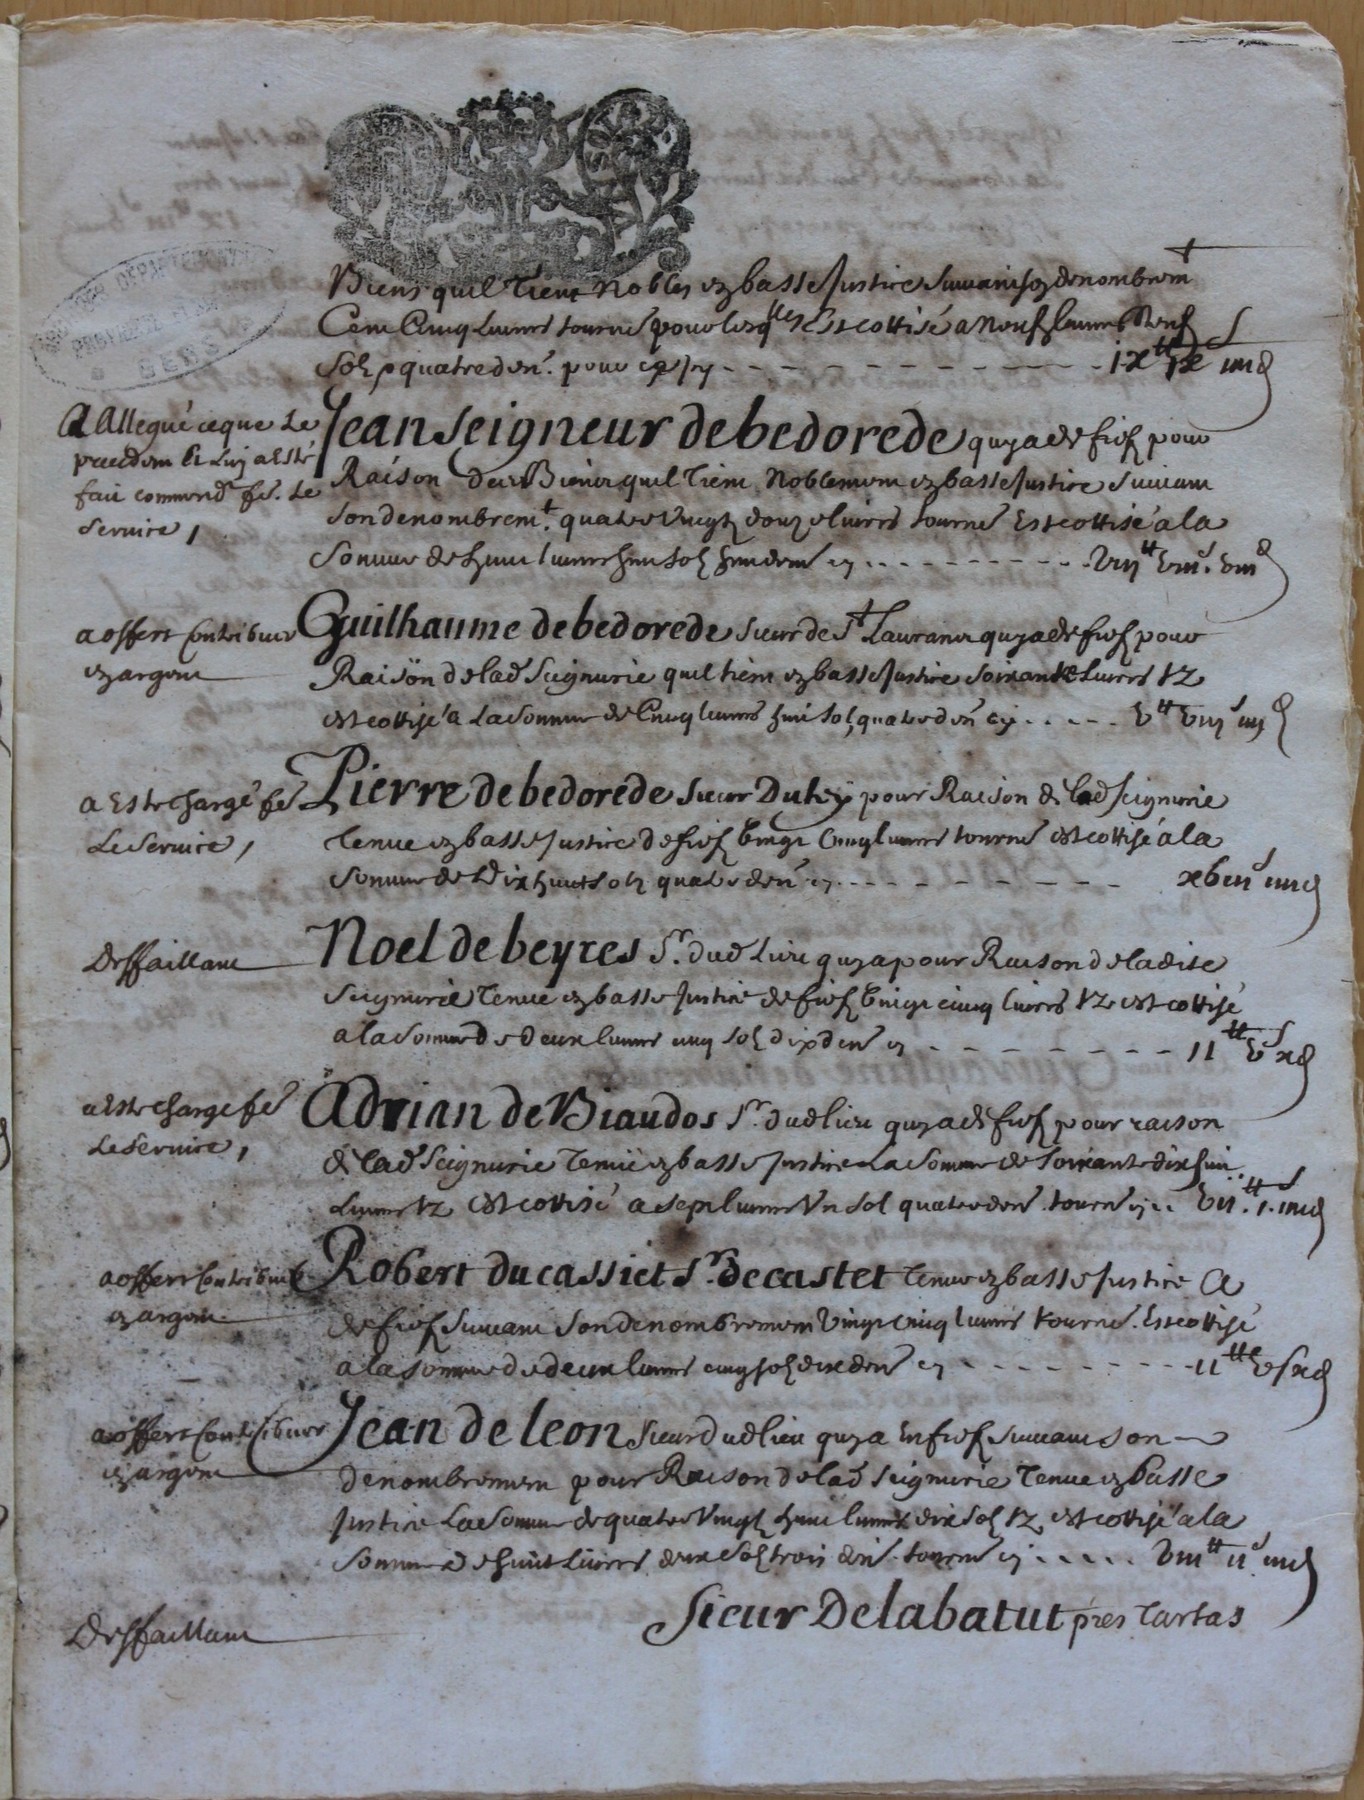 Biens quil tient nobles en basse Justice suivant son denombremt
Cent Cinq Livres tournes pour lesqles Est cottisé a neuf livres Neuf
Solz quatre den. pour cy ixtt ix s iiii d
A Allegué ce que Le
precedent Et Luy a Esté
fait commend. fe. Le
service,
Jean seigneur de bedorede quy a de fief pour
Raison des Biens quil tient Noblement en basse Justice suivant
son denombremt. quatre vingtz douze livres tournes Est cottisé a la
somme de huict livres huit solz huit den cy viiitt viii s. viii d
a offert Contribuer
en argent
Guilhaume de bedorede sieur de St Laurans quy a de fief pour
Raison de lad Seigneurie quil tient en basse Justice soixante Livres tz
est cottisé a La somme de Cinq livres huit solz quatre den cy vtt viii s iiii d
a Este chargé fe
Le service,
Pierre de bedorede sieur Duhy pour Raison de lad seigneurie
tenue en basse Justice de fief Vingt Cinq livres tournes est cottisé a la
somme de Dix huit solz quatre den cy xviii s iiii d
Deffaillant
Noel de beyres Sr. dud Lieu quy a pour Raison de ladite
Seigneurie tenue en basse Justice de fief Vingt cinq livres tz est cottisé
a la somme de deux livres cinq solz dix den cy iitt v s x d
a Este chargé fe
Le service,
Adrian de Biaudos Sr. dud lieu quy a de fief pour raison
de lad Seigneurie tenue en basse Justice La somme de soixante dix huit
Livres tz est cottisé a sept livres Un sol quatre den tourn cy viitt. i. iiii d
a offert Contribuer
en argent
Robert du cassiet Sr. de castet tenue en basse Justice a
de fief suivant son denombrement Vingt Cinq livres tourns. Est cottisé
a la somme de deux livres cinq solz dix den cy iitt v s x d
a offert Contribuer
en argent
Jean de leon Sieur dud lieu quy a en fief suivant son
denombrement pour Raison de lad Seigneurie tenue en basse
Justice La somme de quatre vingtz huit livres dix solz tz est cottisé a la
somme de huit Livres deux solz trois den tourns cy viiitt ii s iii d
Deffaillant
Sieur De labatut prés Tartas